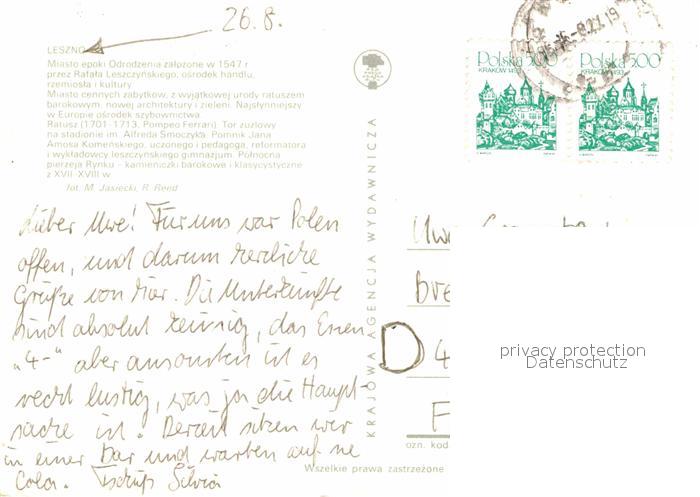 26.8.
LESZNO
Miasto epoki Odrodzenia założone w 1547 r
przez Rafała Leszczyńskiego, ośrodek handlu,
rzemiosła i kultury
Miasto cennych zabytków, z wyjątkowej urody ratuszem
barokowym, nowej architektury i zieleni. Najsłynniejszy
w Europie ośrodek szybownictwa
Ratusz (1701-1713, Pompeo Ferrari). Tor żużlowy
na stadionie im. Alfreda Smoczyka. Pomnik Jana
Amosa Komeńskiego, uczonego i pedagoga, reformatora
i wykładowcy leszczyńskiego gimnazjum. Północna
pierzeja Rynku - kamieniczki barokowe i klasycystyczne
z XVII-XVIII w
fot. M. Jasiecki, R. Reed
Lieber Uwe! Für uns war Polen
offen, und darum herzliche
Grüße von hier. Die Unterkünfte
sind absolut
das Essen
"4-" aber ansonsten ist es
recht lustig, was ja die Haupt-
sache ist. Derzeit sitzen wir
in einer Bar und warten auf ne
Cola. Tschüß Silvia
KRAJOWA AGENCJA WYDAWNICZA
Polska 5.00
KRAKÓW 1493
Polska 5.00
KRAKÓW 1493
Uwe
D 4
F
ozn. kod
Wszelkie prawa zastrzeżone
privacy protection
Datenschutz